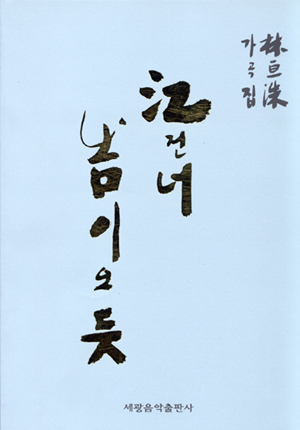 林亘洙
가곡집
江건너
봄이오듯
세광음악출판사